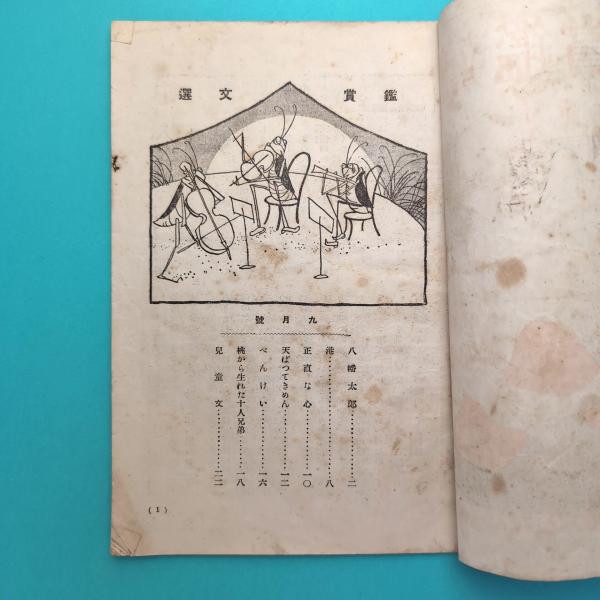 鑑賞文選
九月號
八幡太郎…………二
港…………八
正直な心…………一〇
天ばつてきめん…………一二
べんけい…………一六
桃から生れた十人兄弟……一八
兒童文…………二二
(1)